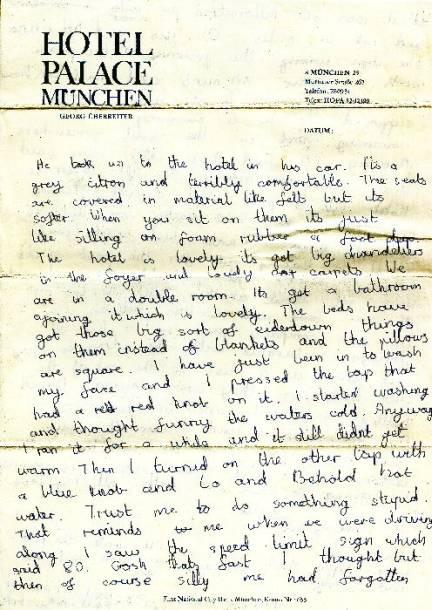 HOTEL
PALACE
MÜNCHEN
GEORG ÜBERREITER
8 MÜNCHEN
Straße
Telefon
Telex: HOPA
DATUM:
He took us to the hotel in his car. (its a
grey citron and terribly comfortable. The seats
are covered in material like felt but its
softer. When you sit on them its just
like sitting on foam rubber a foot deep.
The hotel is lovely its got big chandeliers
in the foyer and lovely carpets We
are in a double room. Its got a bathroom
ajoining it which is lovely. The beds have
got those big sort of eiderdown things
on them instead of blankets and the pillows
are square. I have just been in to wash
my face and I pressed the tap that
had a red red knob on it. I started washing
and thought funny the waters cold. Anyway
I ran it for a while and it still didnt get
warm Then I turned on the other tap with
a blue knob and Lo and Behold hot
water. Trust me to do something stupid.
That reminds me when we were driving
along I saw the speed limit sign which
said 80. Gosh thats fast I thought but
then of course silly me had forgotten
First National City Bank München, Konto Nr.